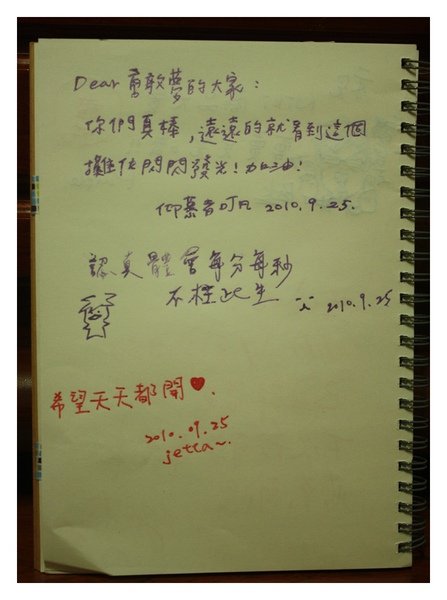 Dear 勇敢夢的大家：
你們真棒，遠遠的就看到這個
攤位閃閃發光！加油！
仰慕者 2010.9.25.
認真體會每分每秒
不枉此生 2010.9.25
希望天天都開♥.
2010.09.25
jetta~.